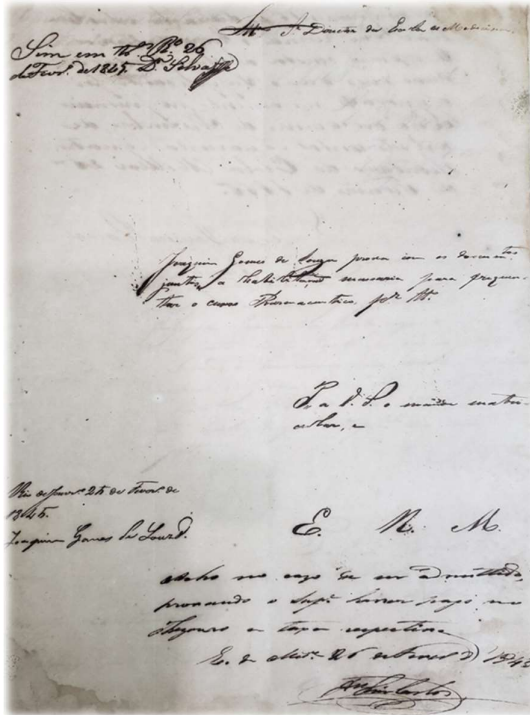 Snr. Director da Escola de Medicina
Sim em 26
de Fever.º de 1845. Dr.
Joaquim Gomes de Souza prova com os documentos
juntos a habilitação necessaria para frequen
tar o curso Pharmaceutico, pr. tt.
P. a V. S. o mande matri-
cular, e
Rio de Janr.º 25 de Fever.º de
1845.
Joaquim Gomes de Souza.
E. R. M.
Acho no cazo de ser admittido,
provando o Supe. haver pago no
Thezouro a taxa respectiva.
E. de Med.ª 26 de Fever.º de 1845